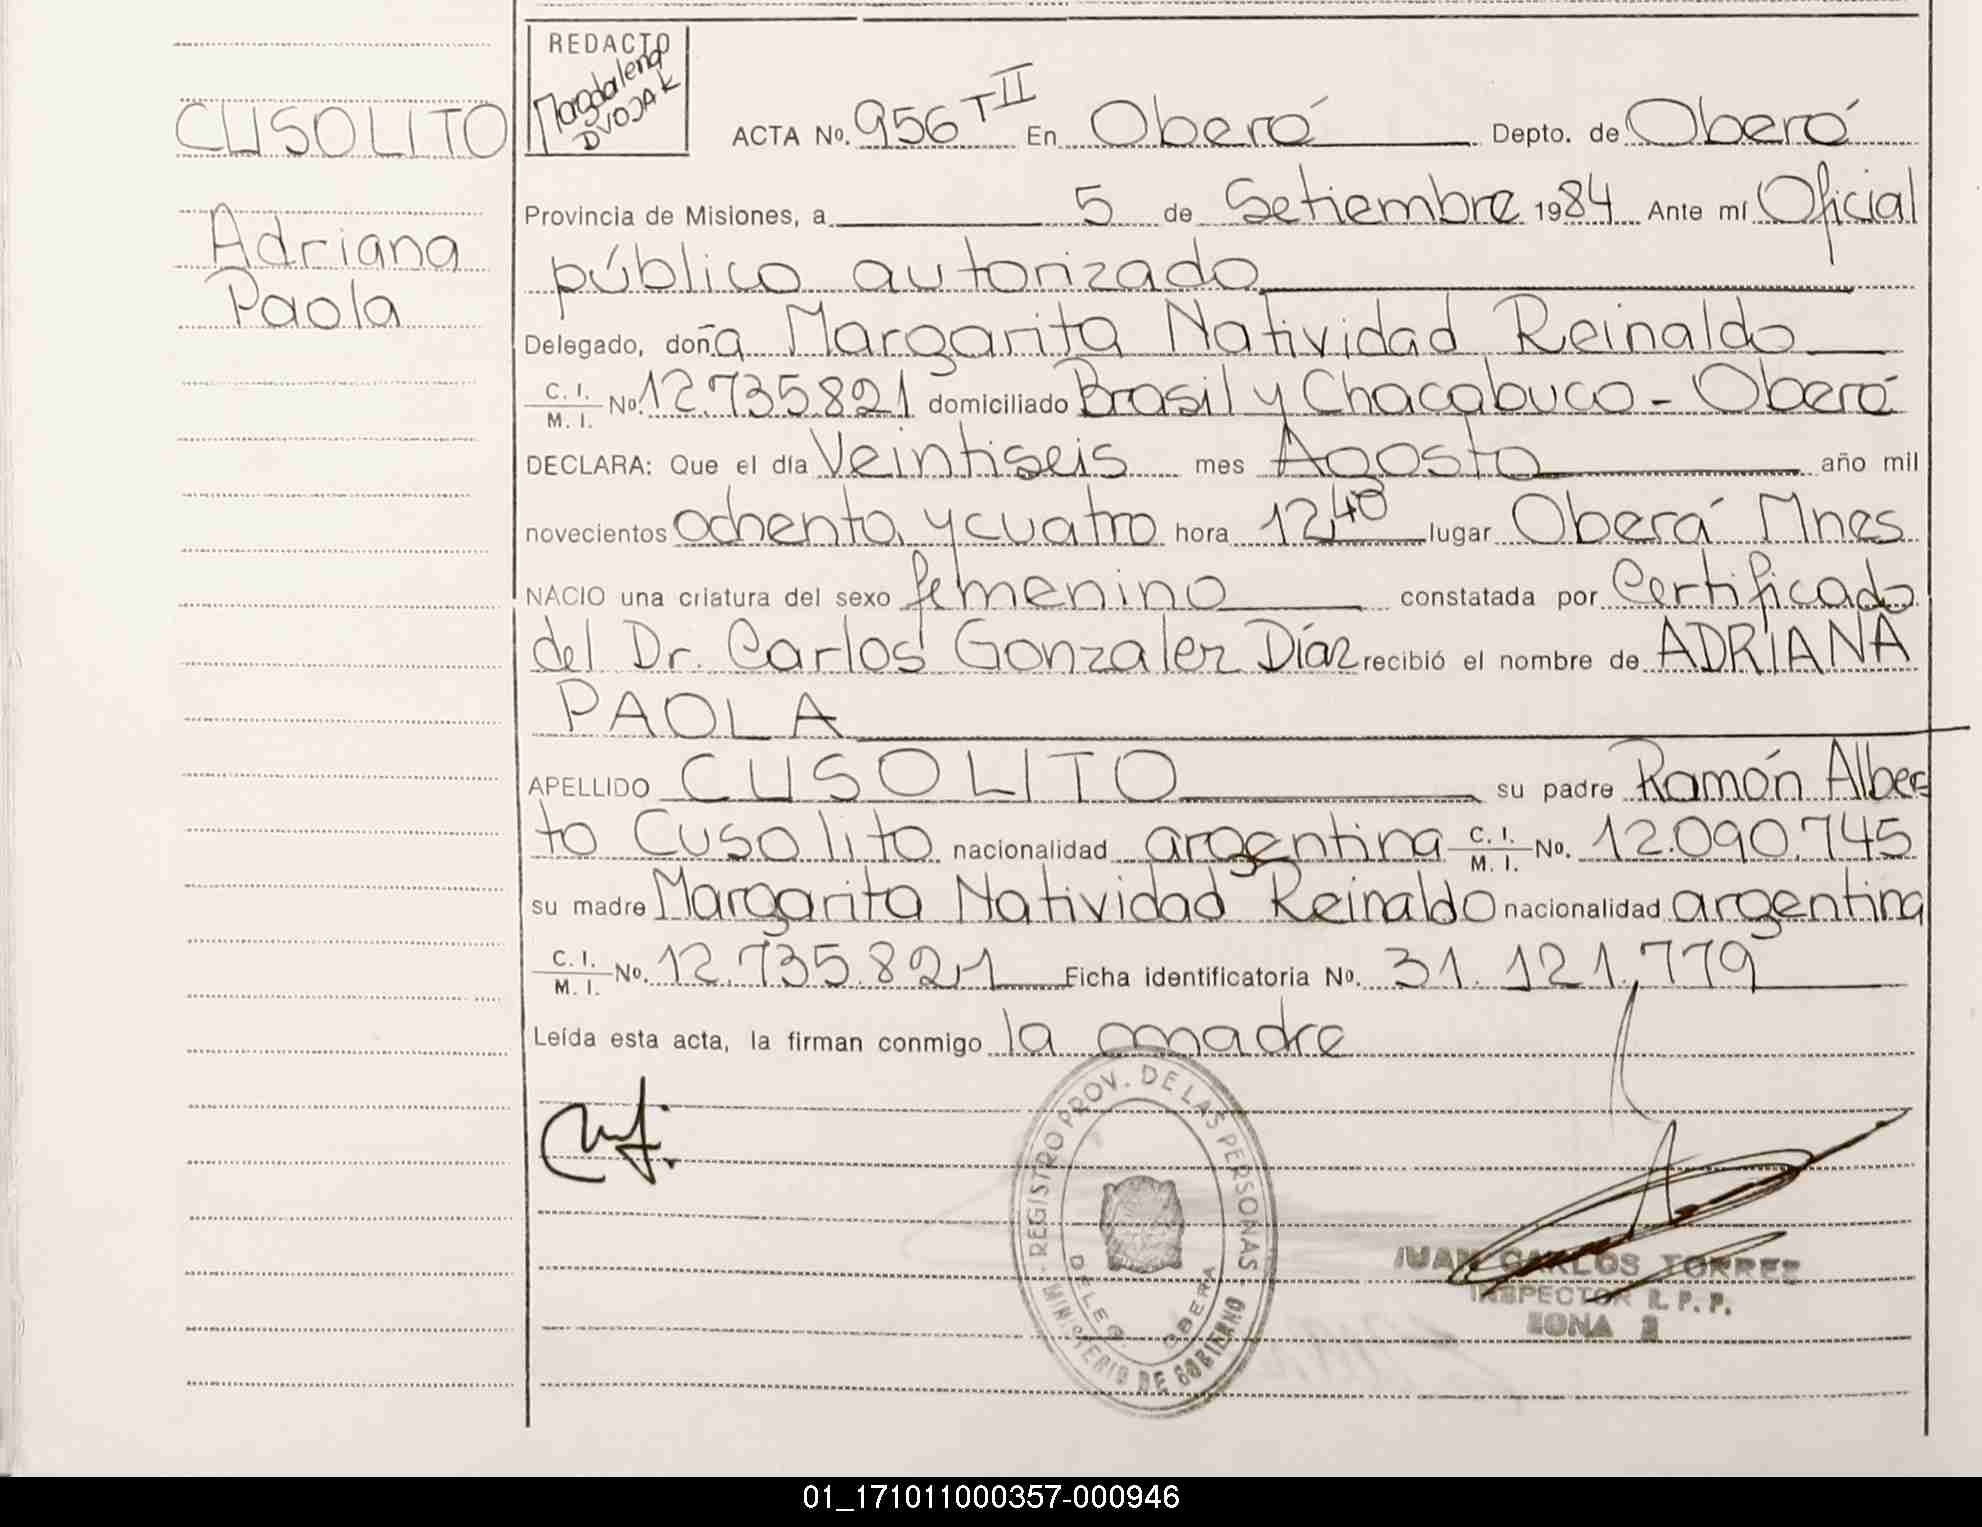 CUSOLITO
Adriana
Paola
REDACTO
Magdalena
DVOJAK
ACTA No. 956 T II En Oberá Depto. de Oberá
Provincia de Misiones, a 5 de Setiembre 1984 Ante mí Oficial
público autorizado
Delegado, doña Margarita Natividad Reinaldo
C. I. M. I. No. 12.735.821 domiciliado Brasil y Chacabuco - Oberá
DECLARA: Que el día Veintiseis mes Agosto año mil
novecientos ochenta y cuatro hora 12,40 lugar Oberá Mnes
NACIO una criatura del sexo femenino constatada por Certificado
del Dr. Carlos Gonzalez Díaz recibió el nombre de ADRIANA
PAOLA
APELLIDO CUSOLITO su padre Ramón Alber
to Cusolito nacionalidad argentina C. I. M. I. No. 12.090.745
su madre Margarita Natividad Reinaldo nacionalidad argentina
C. I. M. I. No. 12.735.821 Ficha identificatoria No. 31.121.779
Leída esta acta, la firman conmigo la madre
REGISTRO PROV. DE LAS PERSONAS
DELEG. OBERA
MINISTERIO DE GOBIERNO
JUAN CARLOS TORRES
INSPECTOR R. P. P.
ZONA
01_171011000357-000946